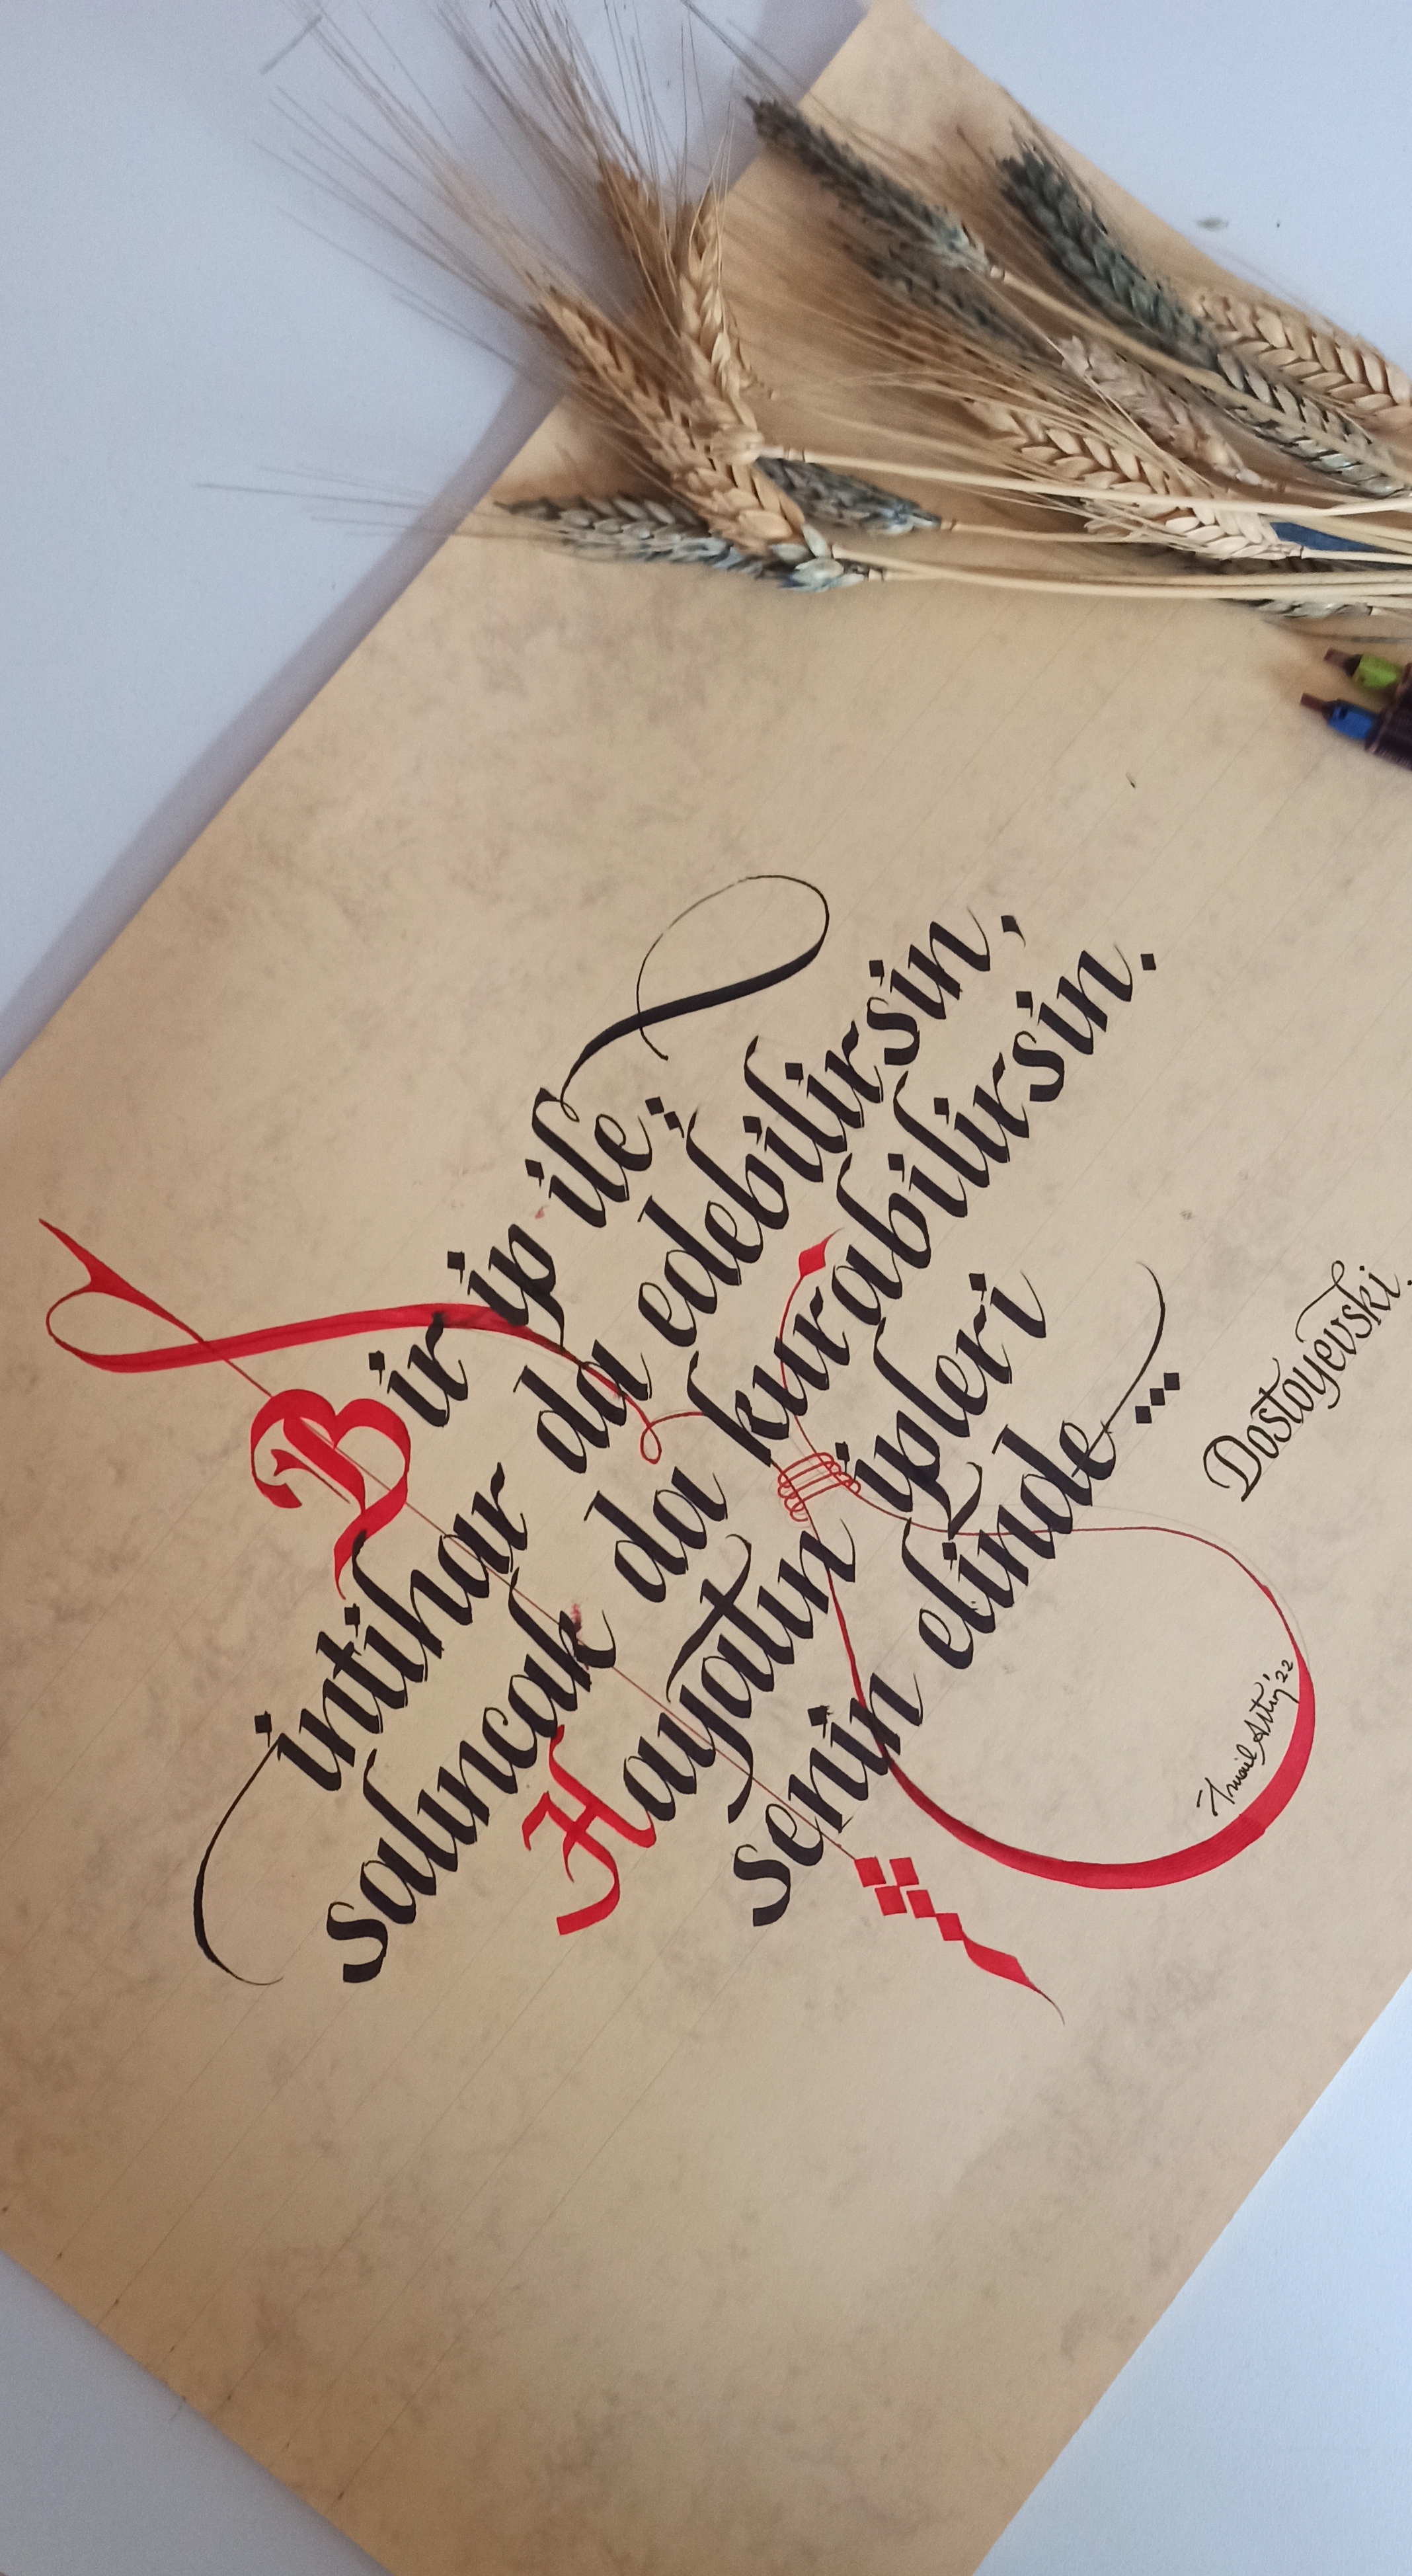 Bir ip ile;
intihar da edebilirsin,
salıncak da kurabilirsin.
Hayatın ipleri
senin elinde...
Dostoyevski.
İsmail '22